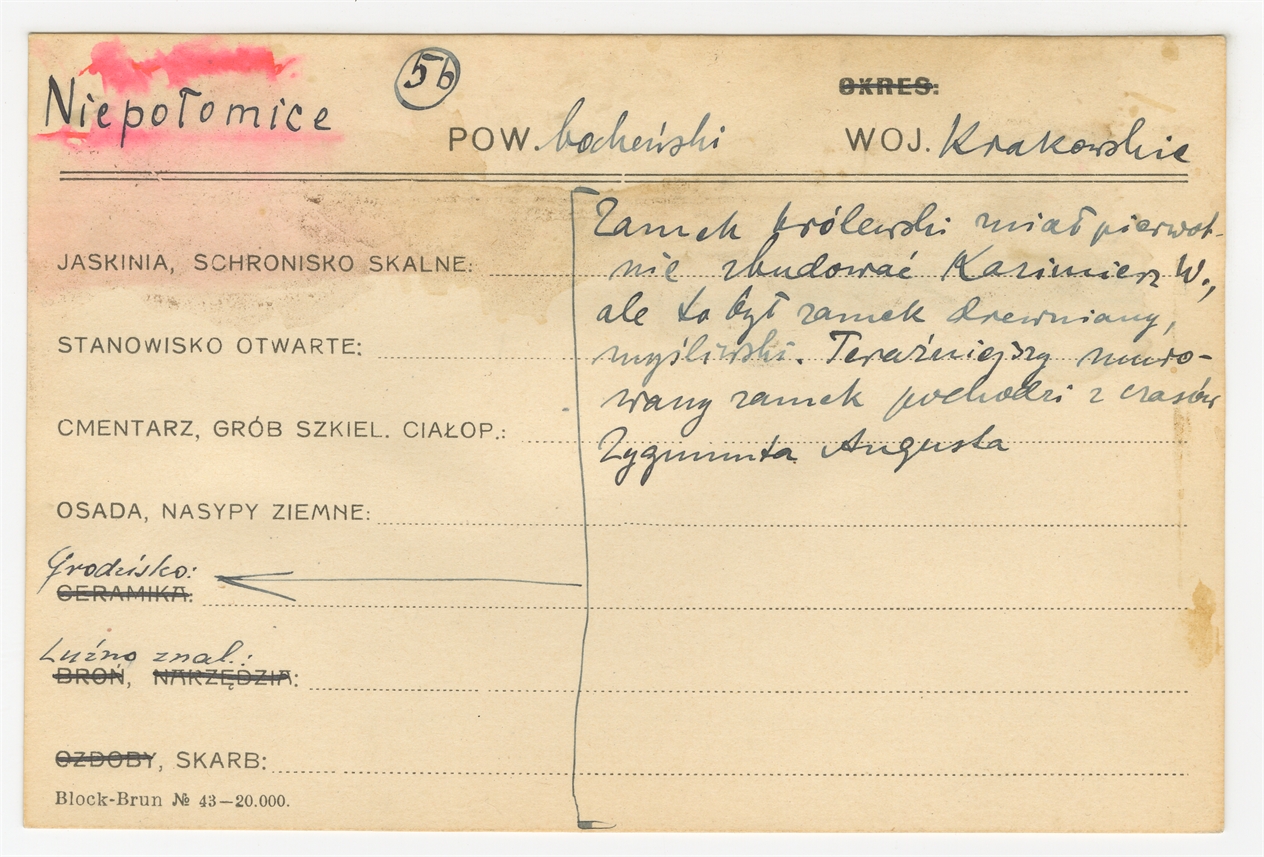 Niepołomice
5b
OKRES:
POW. bocheński WOJ. Krakowskie
Zamek królewski miał pierwot-
nie zbudować Kazimierz W.,
ale to był zamek drewniany,
myśliwski. Teraźniejszy muro-
wany zamek pochodzi z czasów
Zygmunta Augusta
JASKINIA, SCHRONISKO SKALNE:
STANOWISKO OTWARTE:
CMENTARZ, GRÓB SZKIEL. CIAŁOP.:
OSADA, NASYPY ZIEMNE:
Grodzisko:
CERAMIKA:
Luźno znal.:
BROŃ, NARZĘDZIA:
OZDOBY, SKARB:
Block-Brun № 43—20.000.